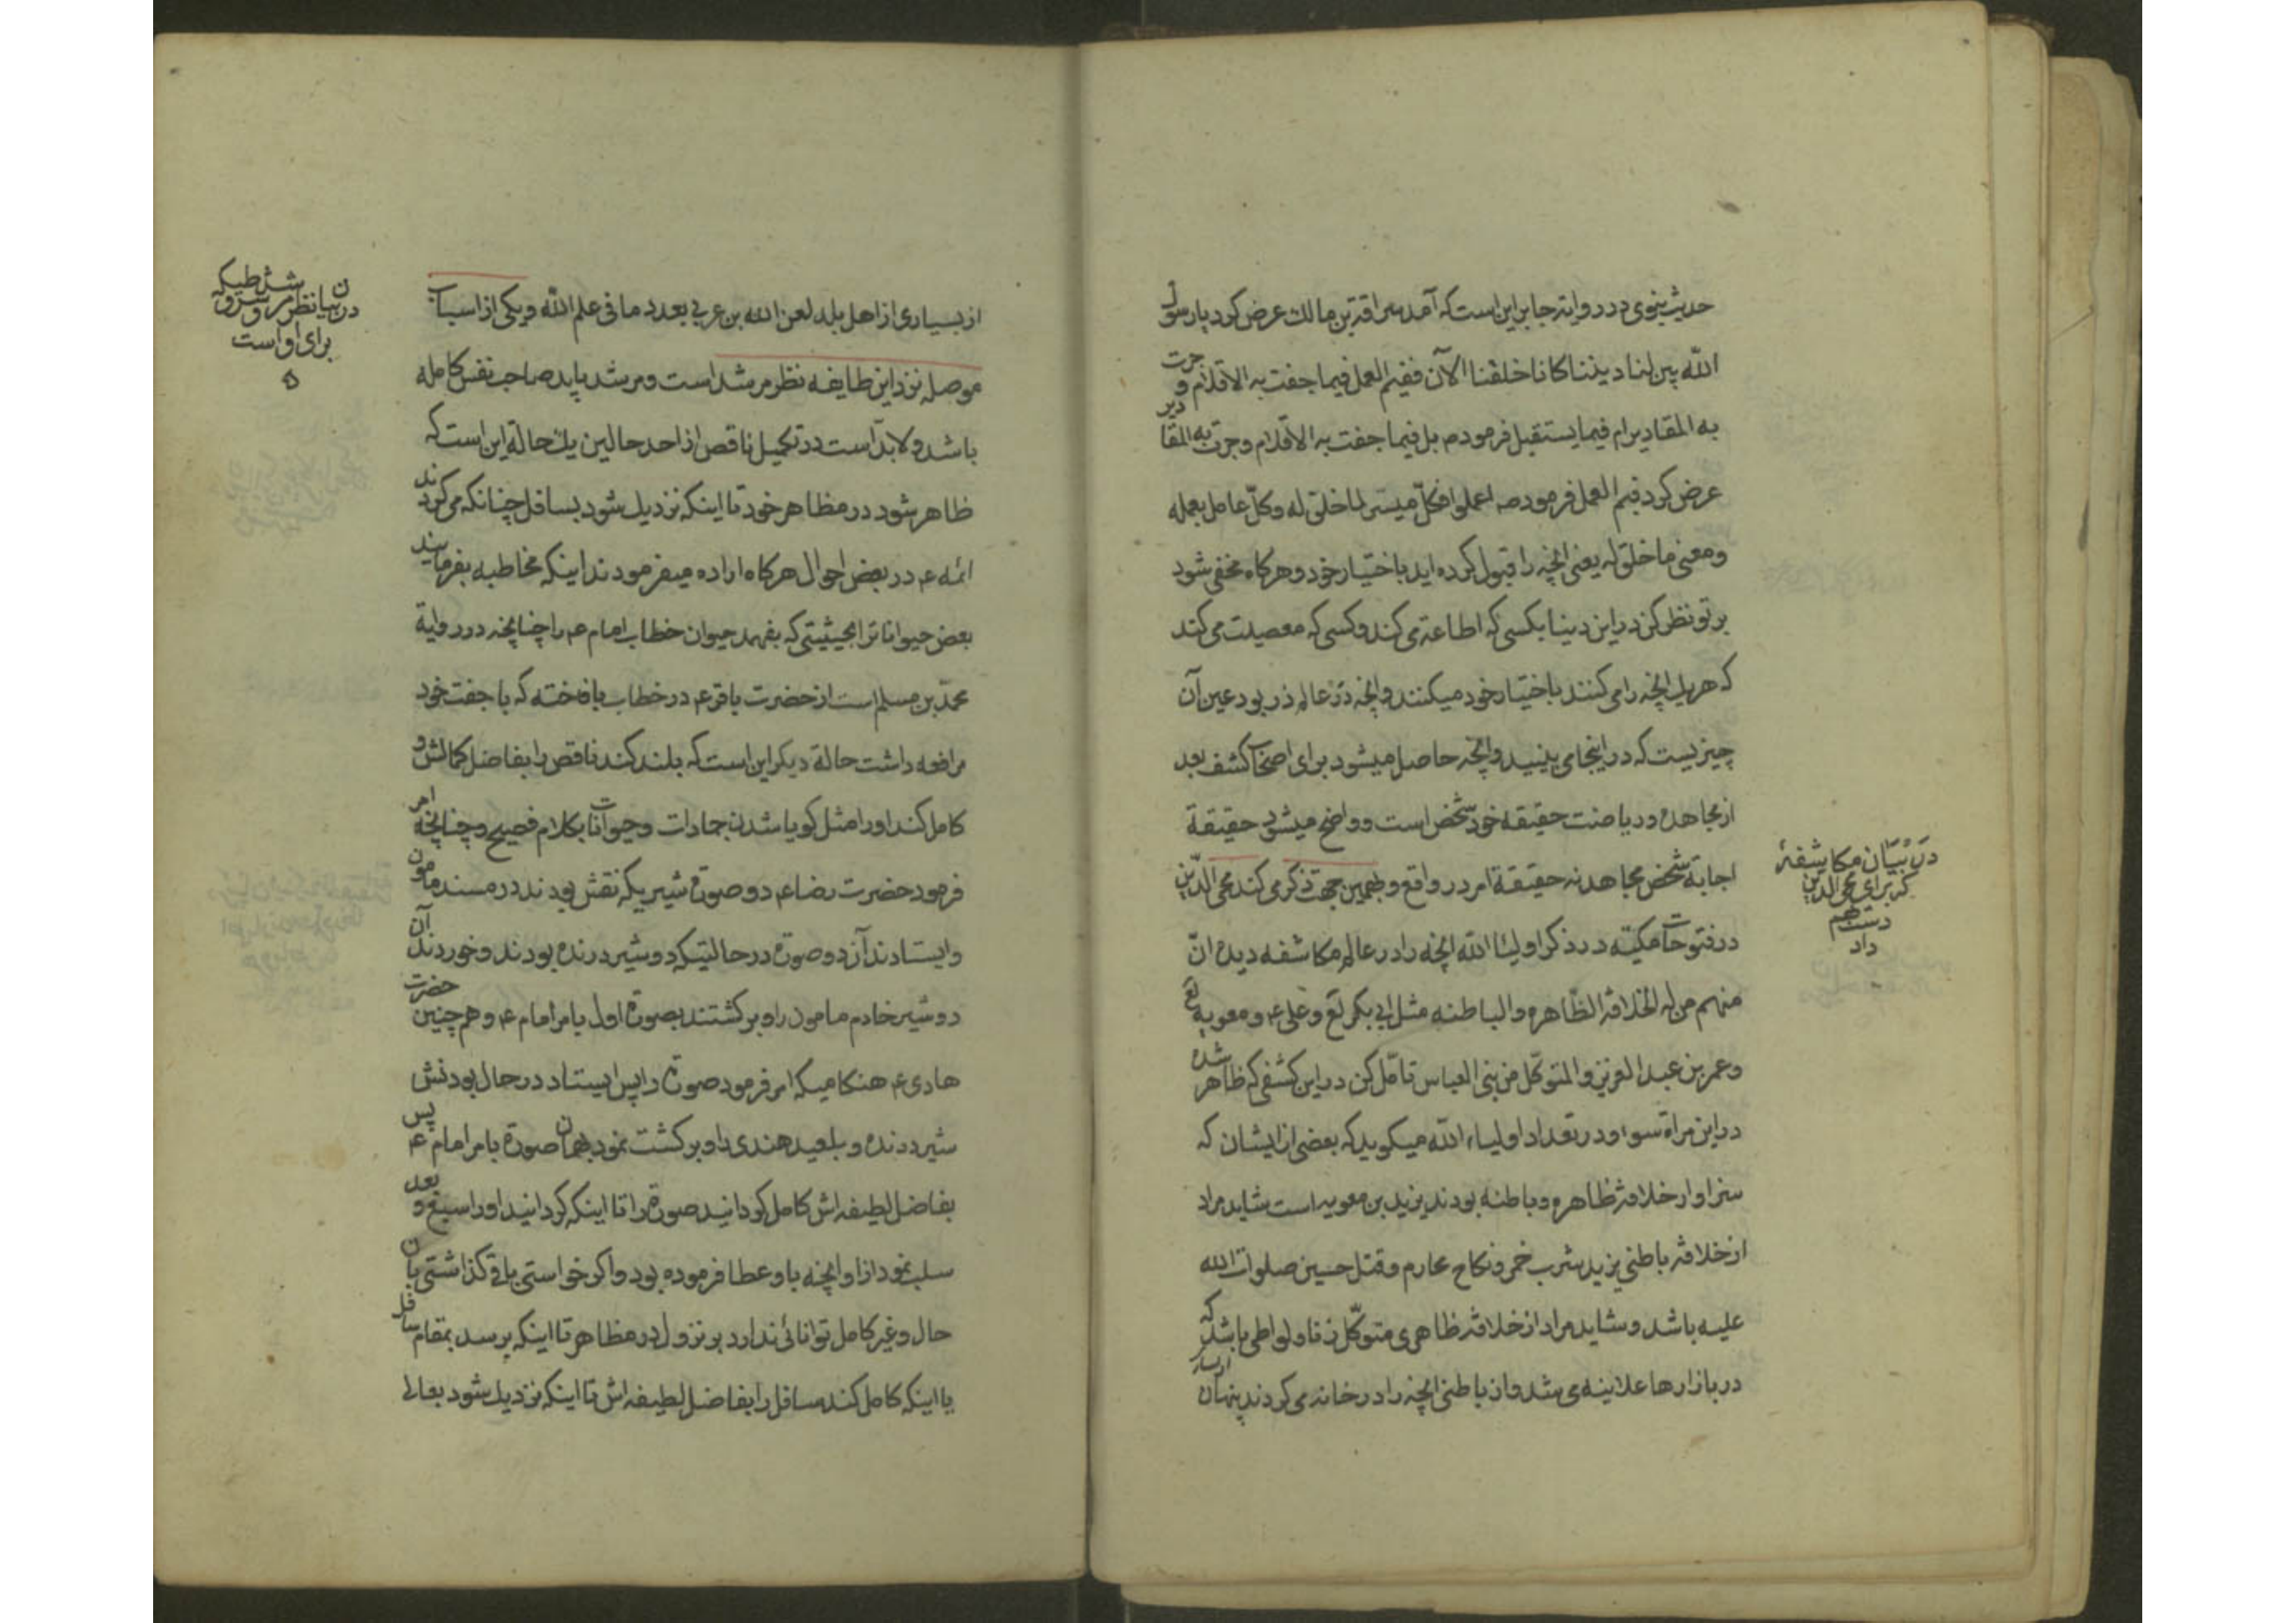 حدیث نبوی در روایة جابر این است که آمد سراقة بن مالك عرض کرد یا رسول
الله بین لنا دیننا کانا خلقنا الآن ففیم العمل فیما جفت به الاقلام و جرت
به المقادیر ام فیما یستقبل فرمود بل فیما جفت به الاقلام وجرت به المقادیر
عرض کرد فیم العمل فرمود اعملوا فکل میسر لما خلق له وکل عامل بعمله
ومعنی ما خلق له یعنی انچه را قبول کرده اید باختیار خود وهرکاه مخفی شود
بر تو نظر کن در این دنیا بکسی که اطاعة می کند وکسی که معصیت می کند
که هر یك انچه را می کنند باختیار خود میکنند وانچه در عالم ذر بود عین آن
چیزیست که در اینجا می بینید وانچه حاصل میشود برای اصحاب کشف بعد
از مجاهده و ریاضت حقیقه خود شخص است و واضح میشود حقیقة
اجابة شخص مجاهد نه حقیقة امر در واقع و بهمین جهت ذکر می کند محی الدین
در فتوحات مکیّه در ذکر اولیاء الله انچه را در عالم مکاشفه دیده انّ
منهم من له الخلافة الظّاهره والباطنه مثل ابی بکر لع وعلی ع ومعویه لع
وعمر بن عبد العزیز والمتوکّل من بنی العباس تامّل کن در این کشفی که ظاهر شده
در این مراة سواء ودر تعداد اولیاء الله میکوید که بعضی از ایشان که
سزاوار خلافة ظاهره وباطنه بودند یزید بن معویه است شاید مراد
از خلافة باطنی یزید شرب خمر ونکاح محارم وقتل حسین صلوات الله
علیه باشد وشاید مراد از خلافة ظاهری متوکّل زنا ولواطی باشد که
در بازارها علانیه می شد واز باطنی انچه را در خانه می کردند پنهان
در بیان مکاشفهٔ
که برای محی الدین
دست بهم
داد
از بسیاری از اهل بلد لعن الله بن عربی بعدد ما فی علم الله ویکی از اسباب
موصله نزد این طایفه نظر مرشد است ومرشد باید صاحب نفس کامله
باشد ولابدّ است در تکمیل ناقص از احد حالین یك حالة این است که
ظاهر شود در مظاهر خود تا اینکه نزدیك شود بسافل چنانکه می کردند
ائمه ع در بعض احوال هرکاه اراده میفرمودند اینکه مخاطبه بفرمایند
بعض حیوانات را بحیثیتی که بفهمد حیوان خطاب امام ع را چنانچه در روایة
محمّد بن مسلم است از حضرت باقر ع در خطاب بافاخته که با جفت خود
مرافعه داشت حالة دیکر این است که بلند کند ناقص را بفاضل کمالش و
کامل کند او را مثل کویا شدن جمادات وحیوانات بکلام فصیح وچنانچه امر
فرمود حضرت رضا ع دو صورة شیریکه نقش بودند در مسند مامون
وایستادند آن دو صورة در حالتیکه دو شیر درنده بودند وخوردند آن
دو شیر خادم مامون را وبرکشتند بصورة اول بامر امام ع وهم چنین حضرت
هادی ع هنکامیکه امر فرمود صورة را پس ایستاد در حال بودنش
شیر درنده وبلعید هندی را وبرکشت نمود بهمان صورة بامر امام ع پس
بفاضل لطیفه اش کامل کردانید صورة را تا اینکه کردانید او را سبع و بعد
سلب نمود از او انچه باو عطا فرموده بود واکر خواستی باقی کذاشتی بان
حال وغیر کامل توانائی ندارد بر نزول در مظاهر تا اینکه برسد بمقام سافل
یا اینکه کامل کند سافل را بفاضل لطیفه اش تا اینکه نزدیك شود بعالی
در بیان نظر مرشد و شرطیکه
برای او است